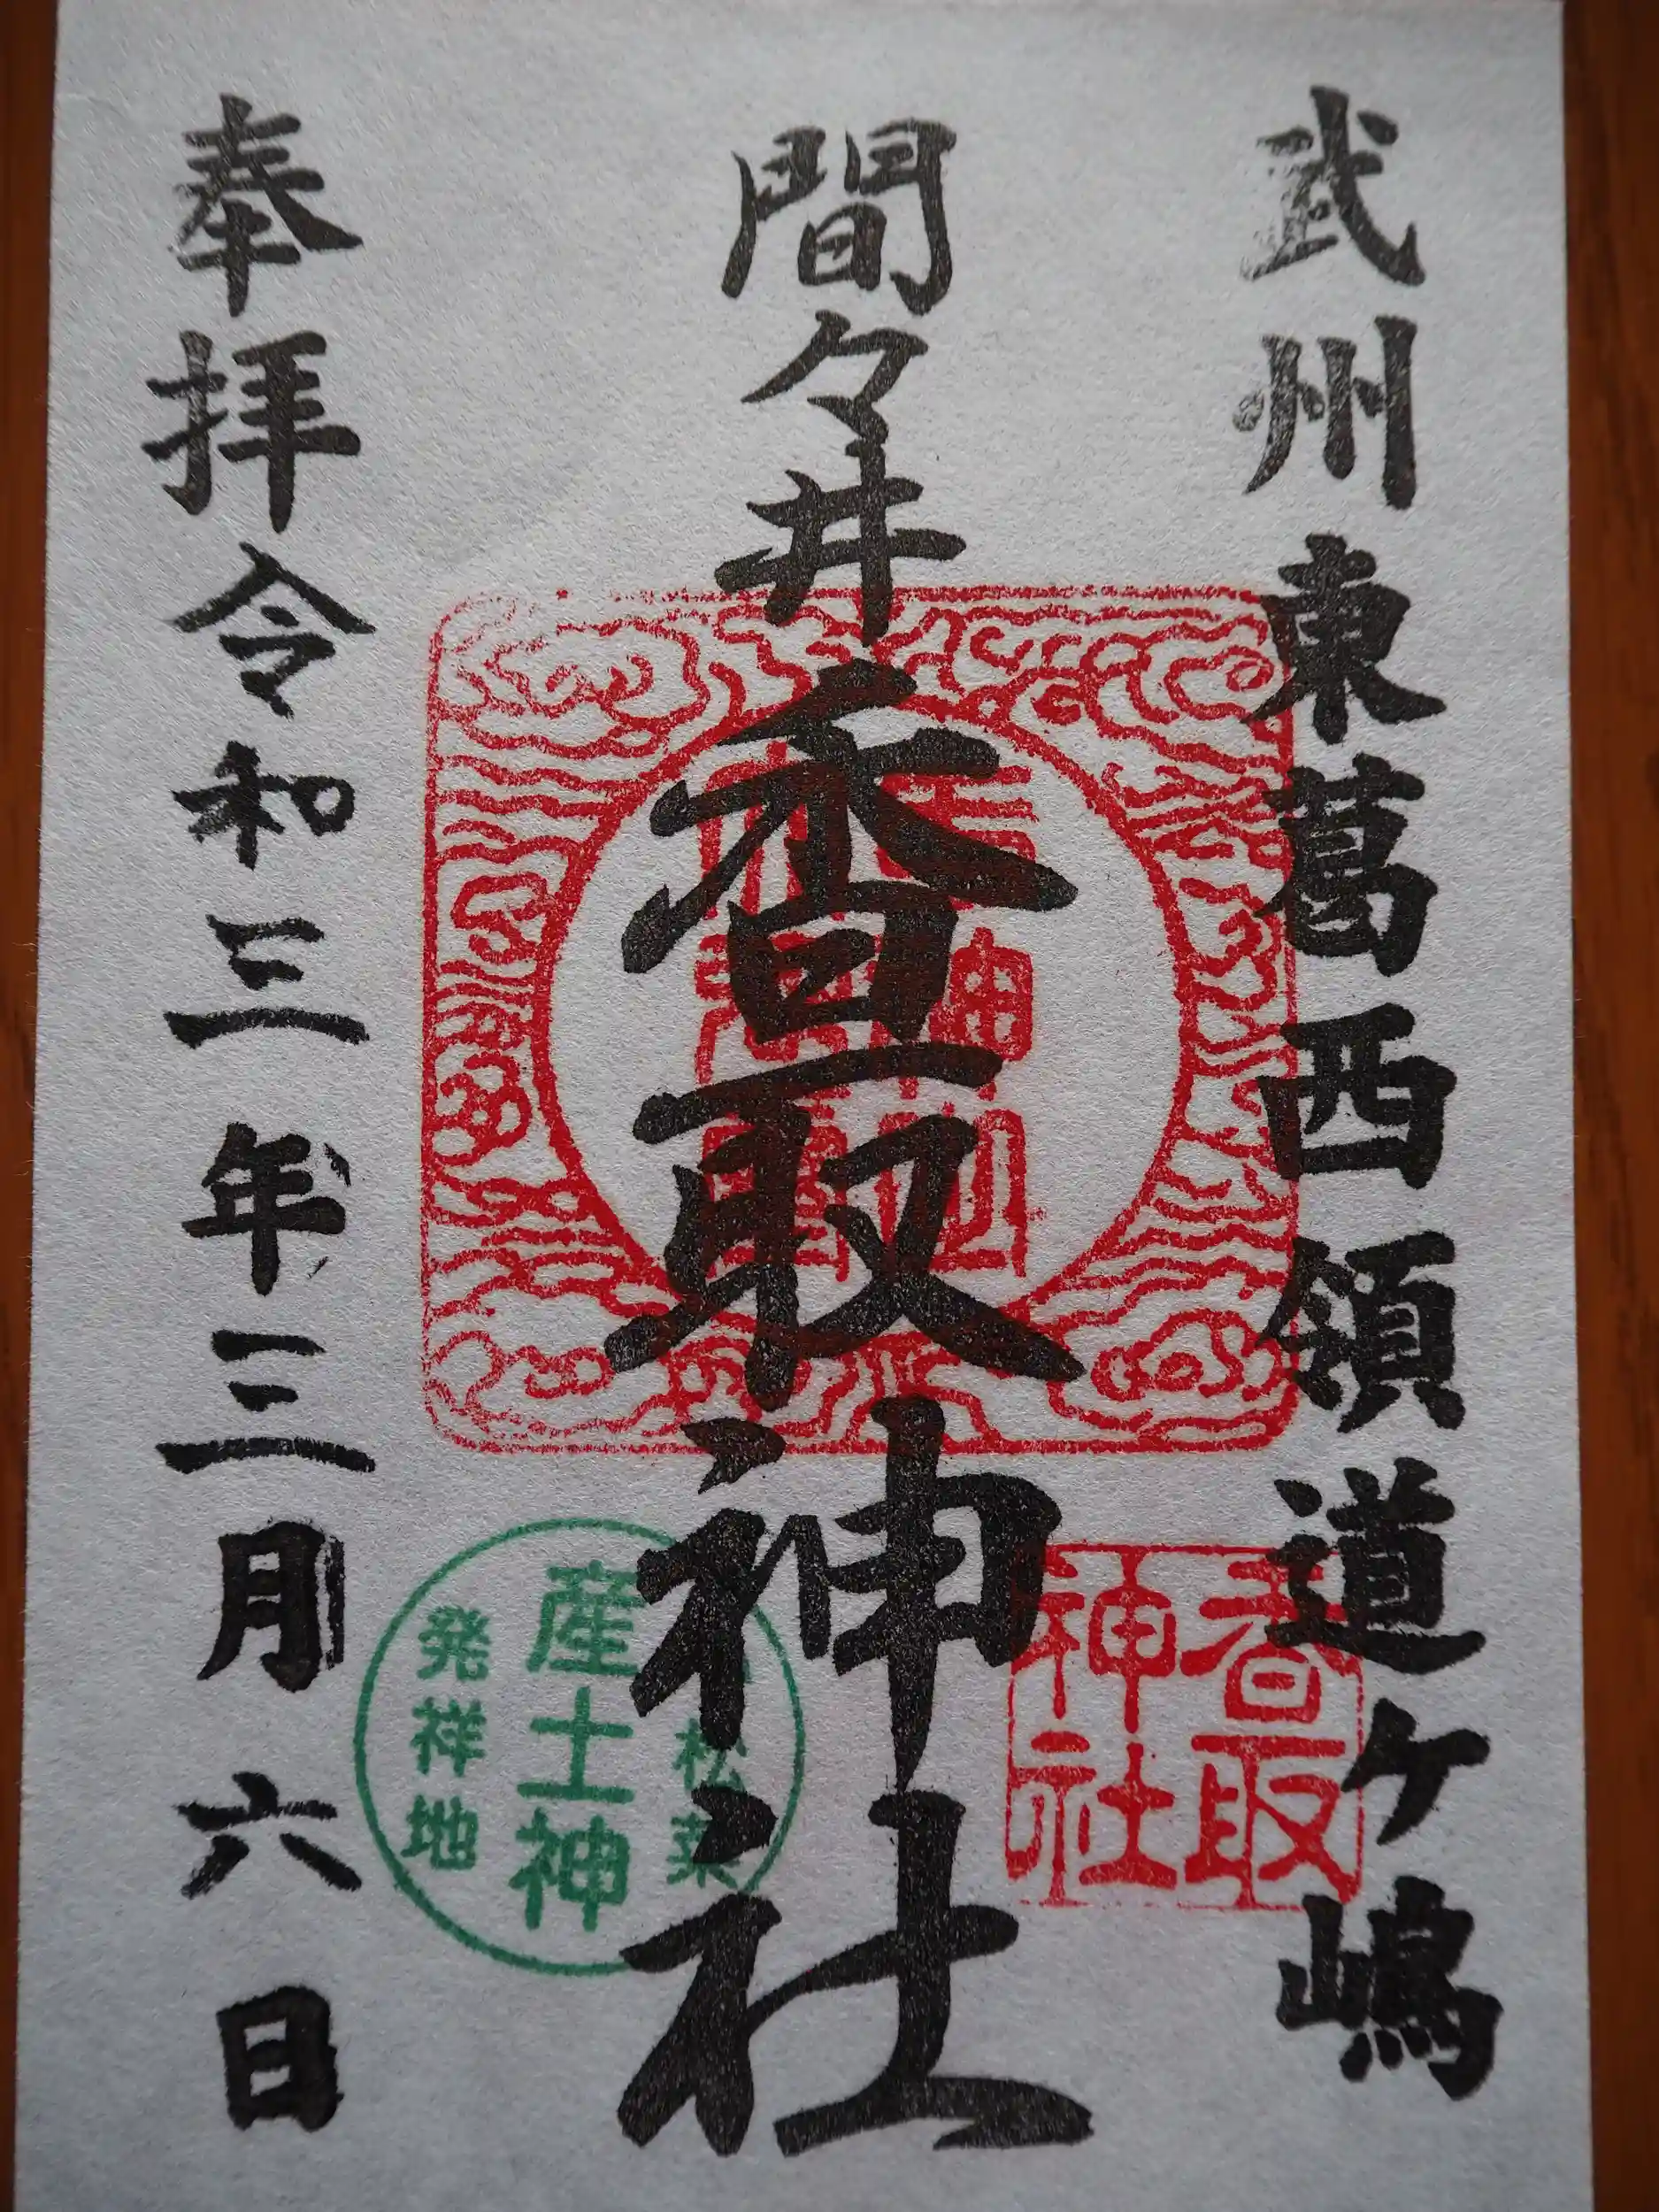 武州東葛西領道ケ嶋
間々井香取神社
奉拝令和三年三月六日
香取
神社
松菜
産土神
発祥地